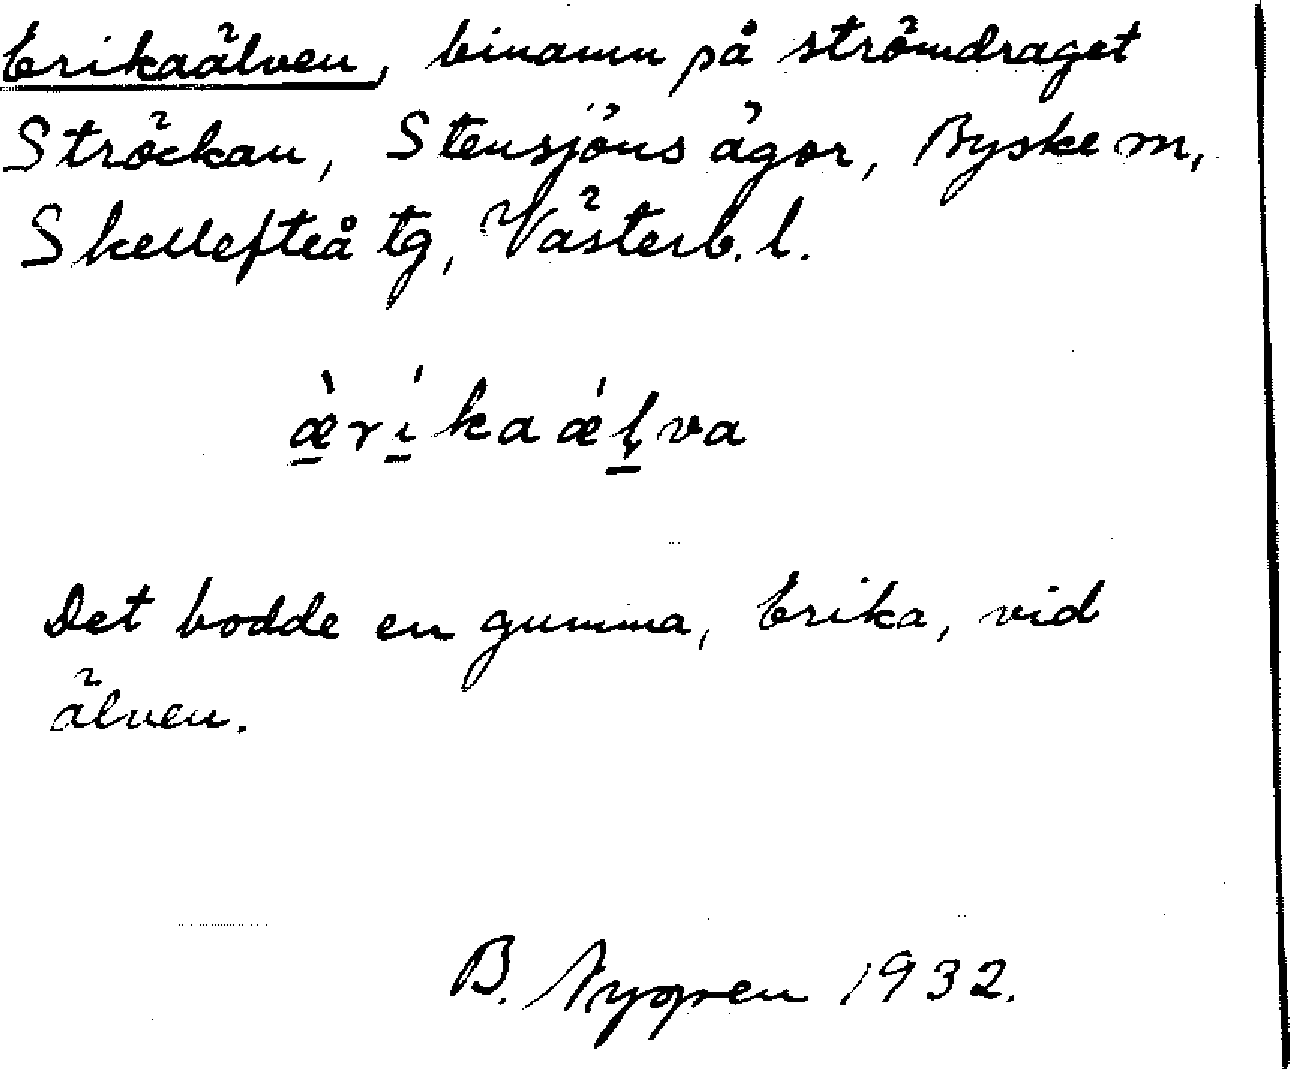 Erikaälven, binamn på strömdraget
Ströckan, Stensjöns ägor, Byske sn,
Skellefteå tg, Västerb. l.
æ̠̀rı̠́kaǽḷ̠va
Det bodde en gumma, Erika, vid
älven.
B. Nygren 1932.